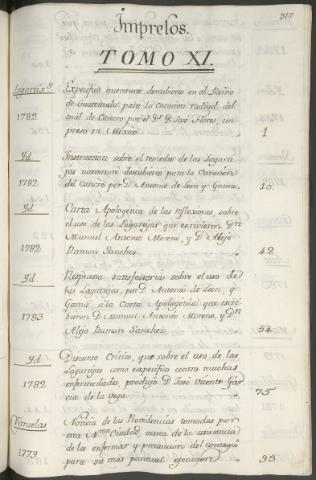 317
Impresos.
TOMO XI.
Lagartixas. Especifico nuevamente descubierto en el Reino
de Goatemala para la curacion radical del
1782. mal de Cancro por el Dr. D. José Flores, im
preso en México 1
Yd. Instruccion sobre el remedio de las Lagarti
jas nuevamente descubierto para la Curacion
1782 del Cancro por D. Antonio de Leon y Gama. 10
Yd. Carta Apologetica de las reflexiones, sobre
el uso de las Lagartijas que escrivieron Drs
Manuel Antonio Moreno, y D. Alejo
1782. Ramon Sanchez 42
Yd. Respuesta satisfactoria sobre el uso de
las Lagartijas, por D. Antonio de Leon, y
Gama a la Carta Apologética que escri
1783 bieron D. Manuel Antonio Moreno, y Dn
Alejo Ramon Sanchez 54
Yd. Discurso Crítico, que sobre el uso, de las
Lagartijas como especifico contra muchas
1782 enfermedades, produjo D. José Vicente Gar
cia de la Vega 75
Viruelas Noticia de las Providencias tomadas por
esta Nma Ciudad, acerca de la asistencia
de los enfermos y precaucion del contagio
1779 para su mas puntual ejecucion 99